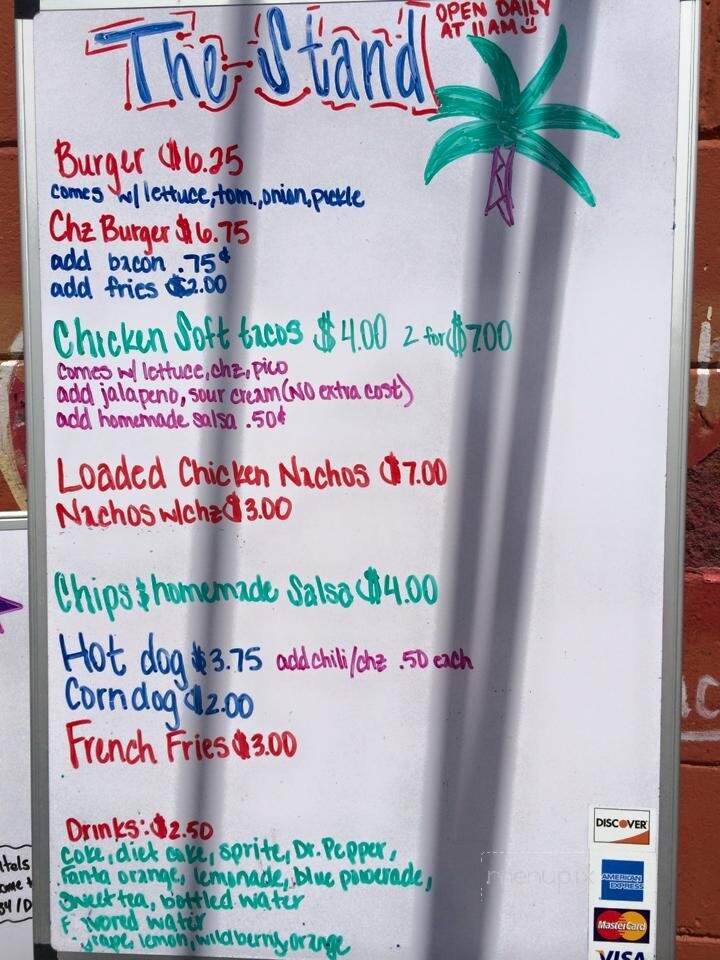 The Stand
OPEN DAILY
AT 11AM
Burger $6.25
comes w/ lettuce, tom., onion, pickle
Chz Burger $6.75
add bacon .75¢
add fries $2.00
Chicken Soft tacos $4.00 2 for $7.00
comes w/ lettuce, chz, pico
add jalapeno, sour cream (NO extra cost)
add homemade salsa .50¢
Loaded Chicken Nachos $7.00
Nachos w/chz $3.00
Chips & homemade Salsa $4.00
Hot dog $3.75 add chili/chz .50 each
Corndog $2.00
French Fries $3.00
Drinks: $2.50
coke, diet coke, sprite, Dr. Pepper,
Fanta orange, lemonade, blue powerade,
Sweet tea, bottled water
water
grape, lemon, wildberry, orange
DISCOVER
AMERICAN EXPRESS
MasterCard
VISA
menupix